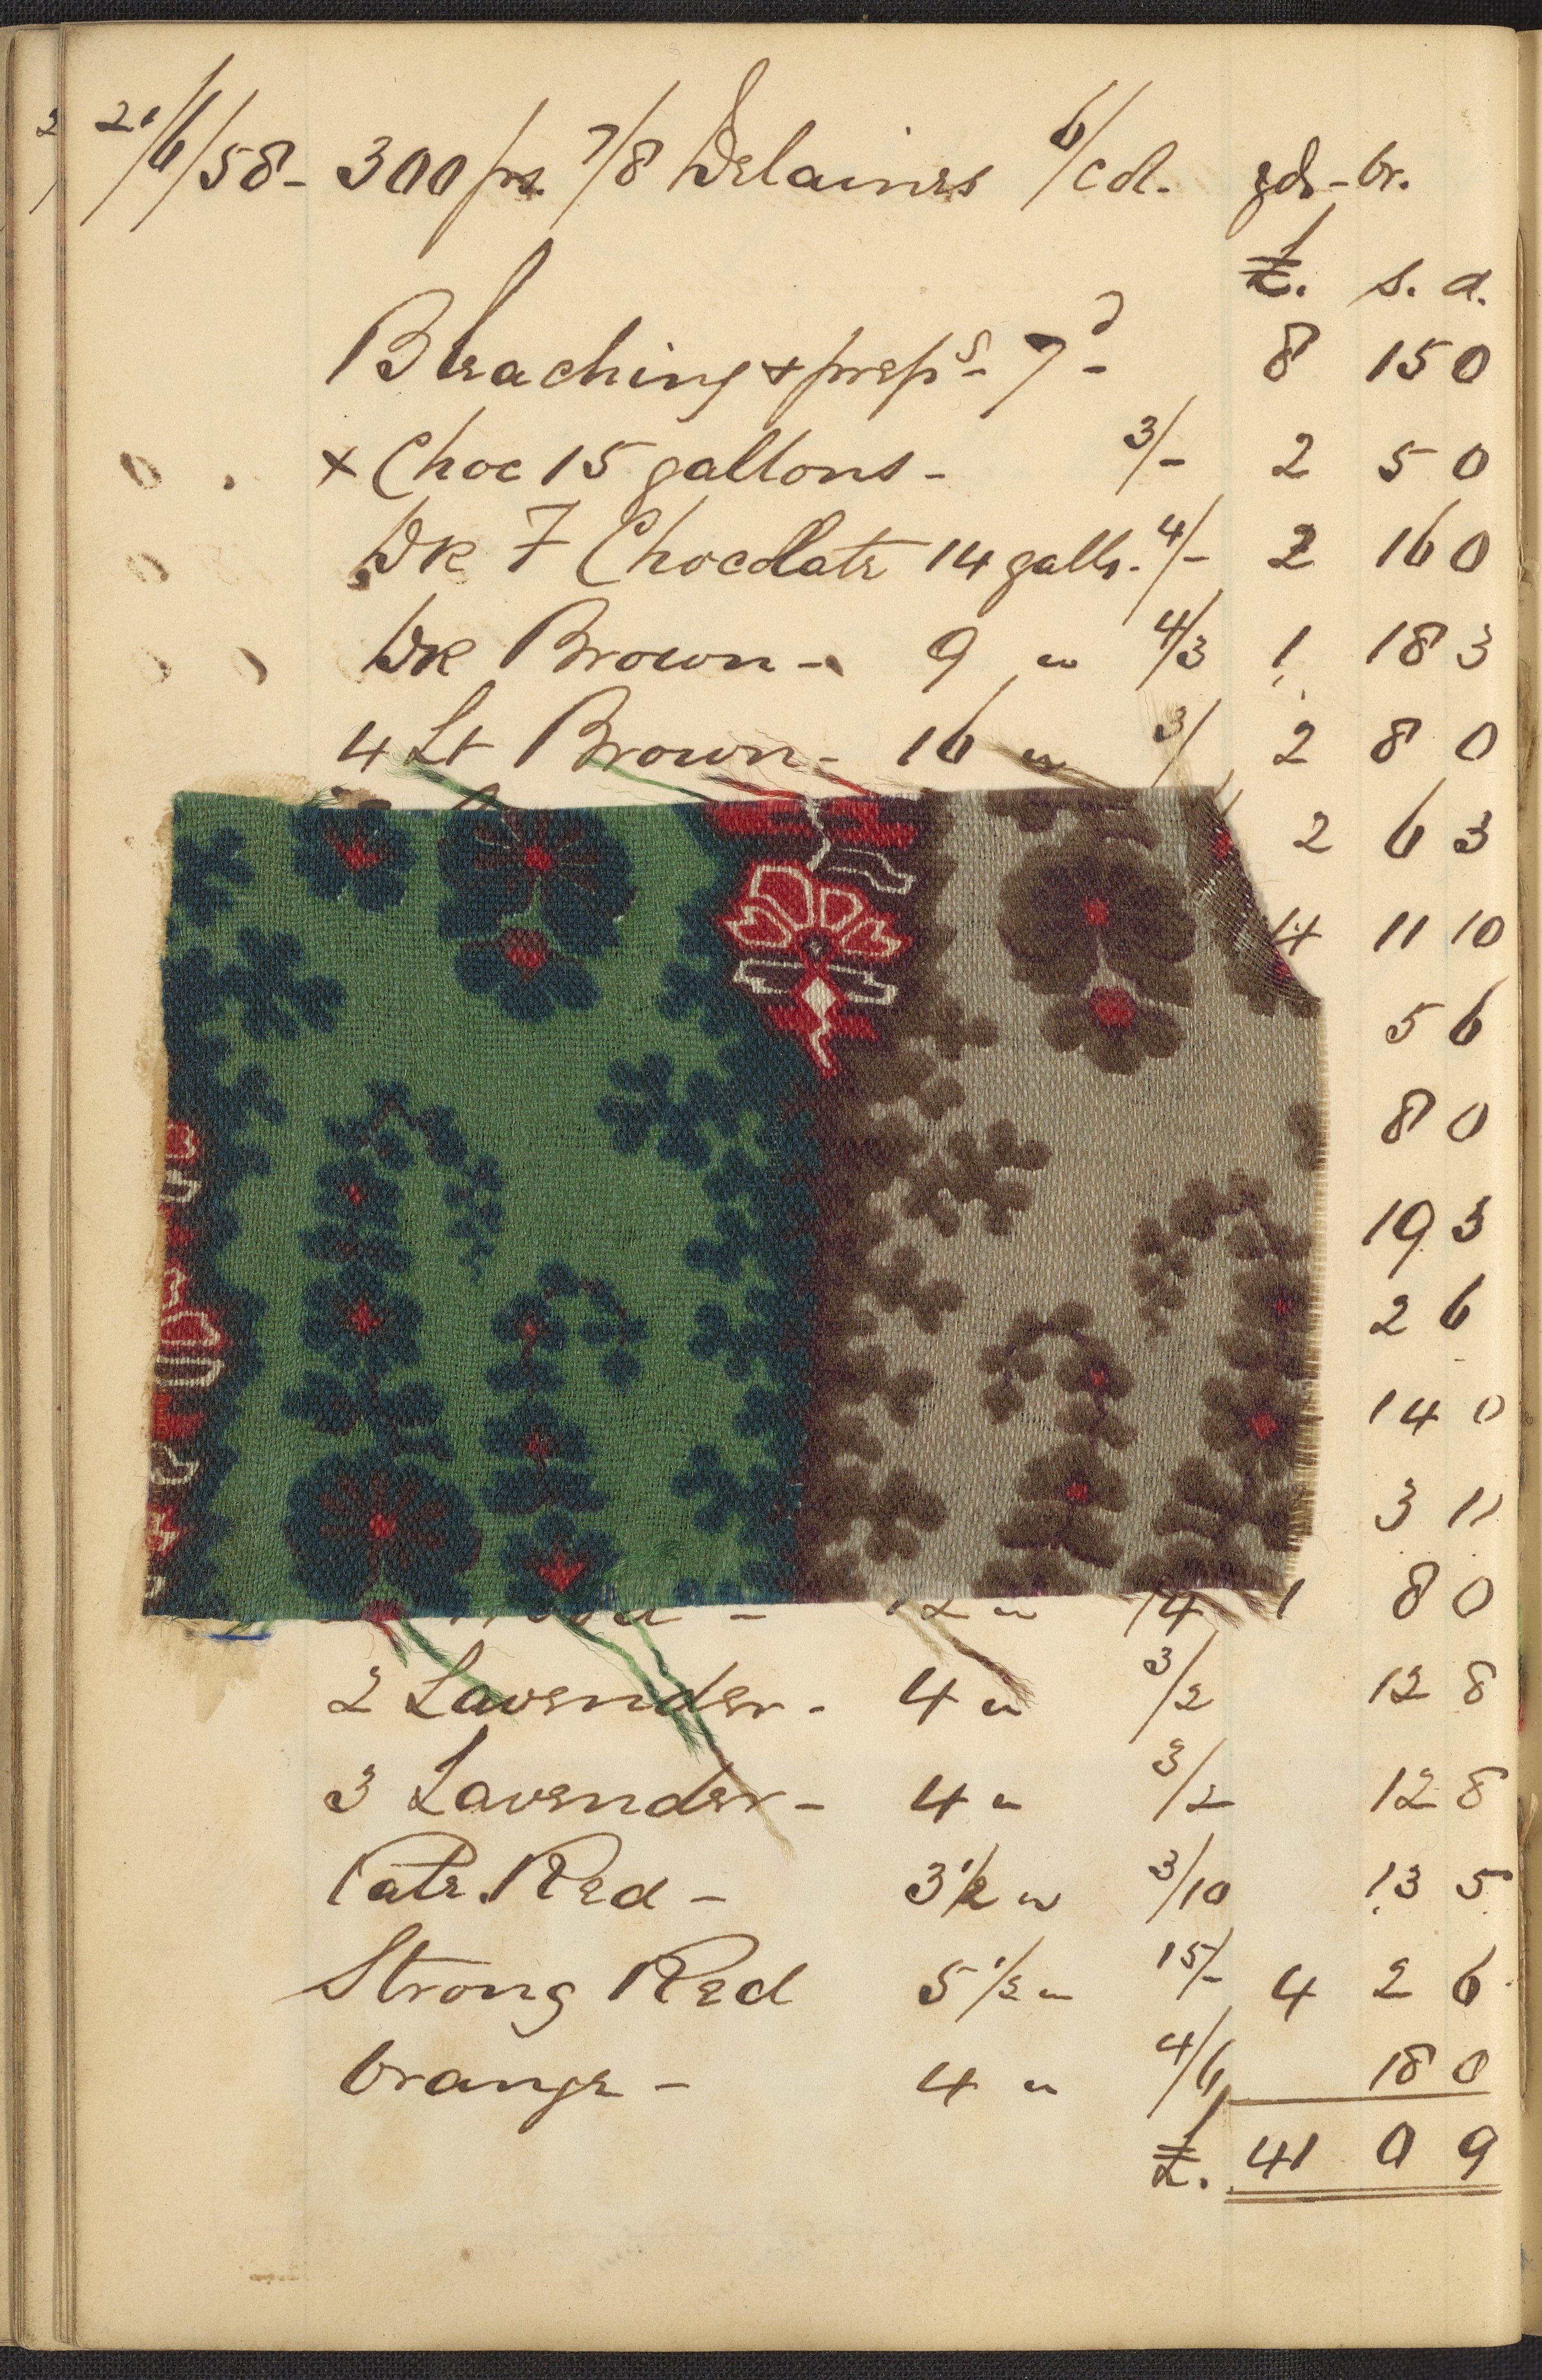 21/6/58 - 300 ps. 7/8 Delaines 6/col. gds - br.
£. s. d.
Bleaching & preps - 7d - 8 15 0
x Choc 15 gallons - 3/- 2 5 0
Dk 7 Chocolate 14 galls. 4/- 2 16 0
Dk Brown - 9 " 4/3 1 18 3
4 Lt Brown - 16 " 3/ 2 8 0
2 6 3
4 11 10
5 6
8 0
19 3
2 6
14 0
3 11
- 12 " 1 8 0
2 Lavender - 4 " 3/2 12 8
3 Lavender - 4 " 3/2 12 8
Cate. Red - 3 1/2 " 3/10 13 5
Strong Red 5 1/2 " 15/- 4 2 6
Orange - 4 " 4/6 18 0
£. 41 0 9